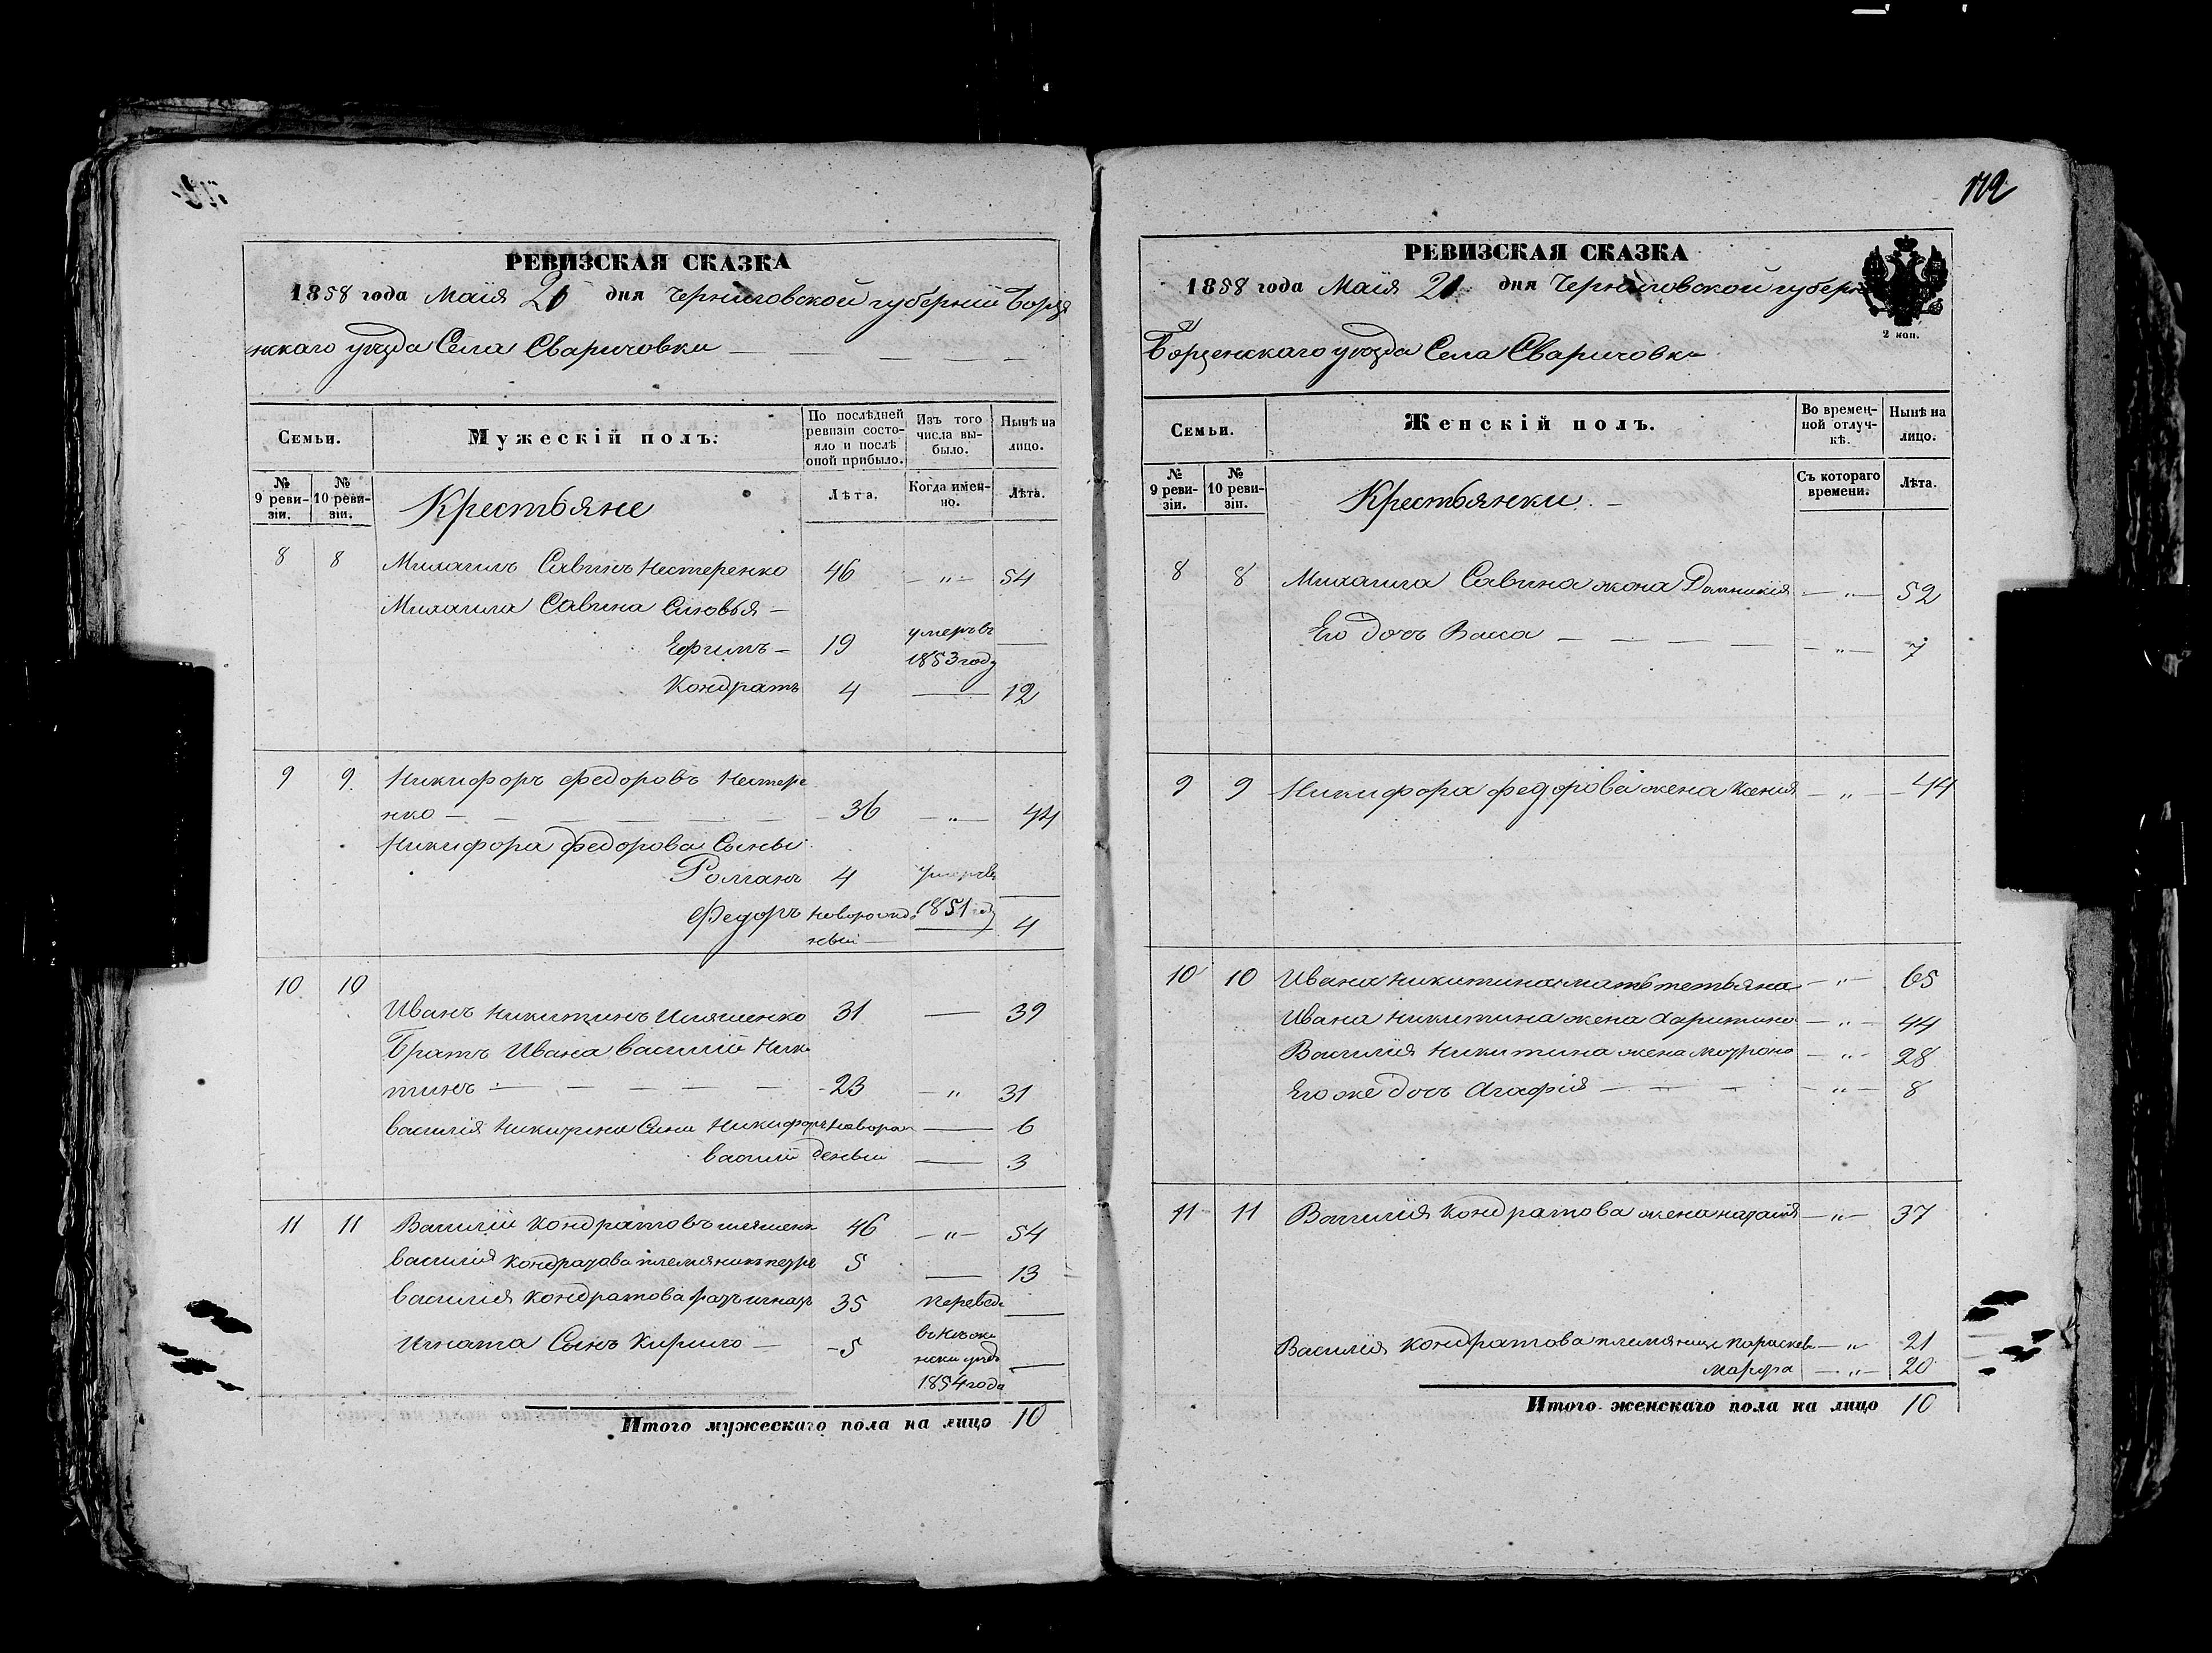 РЕВИЗСКАЯ СКАЗКА
1858 года Маія 21 дня Черниговской губерніи Борзе
нскаго уѣзда Села Сваричовки
Семьи.
Мужескій полъ.
По послѣдней ревизіи состояло и послѣ оной прибыло.
Изъ того числа выбыло.
Нынѣ на лицо.
№ 9 ревизіи.
№ 10 ревизіи.
Крестьяне
Лѣта.
Когда именно.
Лѣта.
8 8 Михаилъ Савинъ Нестеренко 46 — „ — 54
Михаила Савина Сыновья —
Ефимъ — 19 умеръ въ 1853 году —
Кондратъ 4 — 12
9 9 Никифоръ Федоровъ Нестере
нко — 36 — „ — 44
Никифора Федорова Сыны
Романъ 4 умеръ въ 1851 году —
Федоръ новорожде
нный — 4
10 10
Иванъ Никитинъ Иляшенко 31 — 39
Братъ Ивана Василій Ники
тинъ — 23 — „ 31
Василія Никитина Сыны Никифоръ новорож — 6
Василій денные — 3
11 11 Василій Кондратовъ иляшенк 46 — „ — 54
Василія Кондратова племяникъ петръ 5 — 13
Василія Кондратова братъ игнатъ 35 переведе —
Игната Сынъ Кирило — 5 —
1854 года
Итого мужескаго пола на лицо 10
112
РЕВИЗСКАЯ СКАЗКА
1858 года Маія 21 дня Черниговской губерн
2 коп.
Борзенскаго уѣзда Села Сваричовки
Семьи.
Женскій полъ.
Во временной отлучкѣ.
Нынѣ на лицо.
№ 9 ревизіи.
№ 10 ревизіи.
Крестьянки
Съ котораго времени.
Лѣта.
8 8 Михаила Савина жона Домникія — „ — 52
Его дочь Васа — „ — 7
9 9 Никифора Федорова жена Ксенія — „ — 44
10 10 Ивана Никитина мать тетьяна — „ — 65
Ивана Никитина жена Харитина — „ — 44
Василія Никитина жена Мотрона — „ — 28
Его же дочь Агафія — „ — 8
11 11 Василія Кондратова жена наталія — „ — 37
Василія Кондратова племяницы Параскев — „ 21
Марфа — „ — 20
Итого женскаго пола на лицо 10